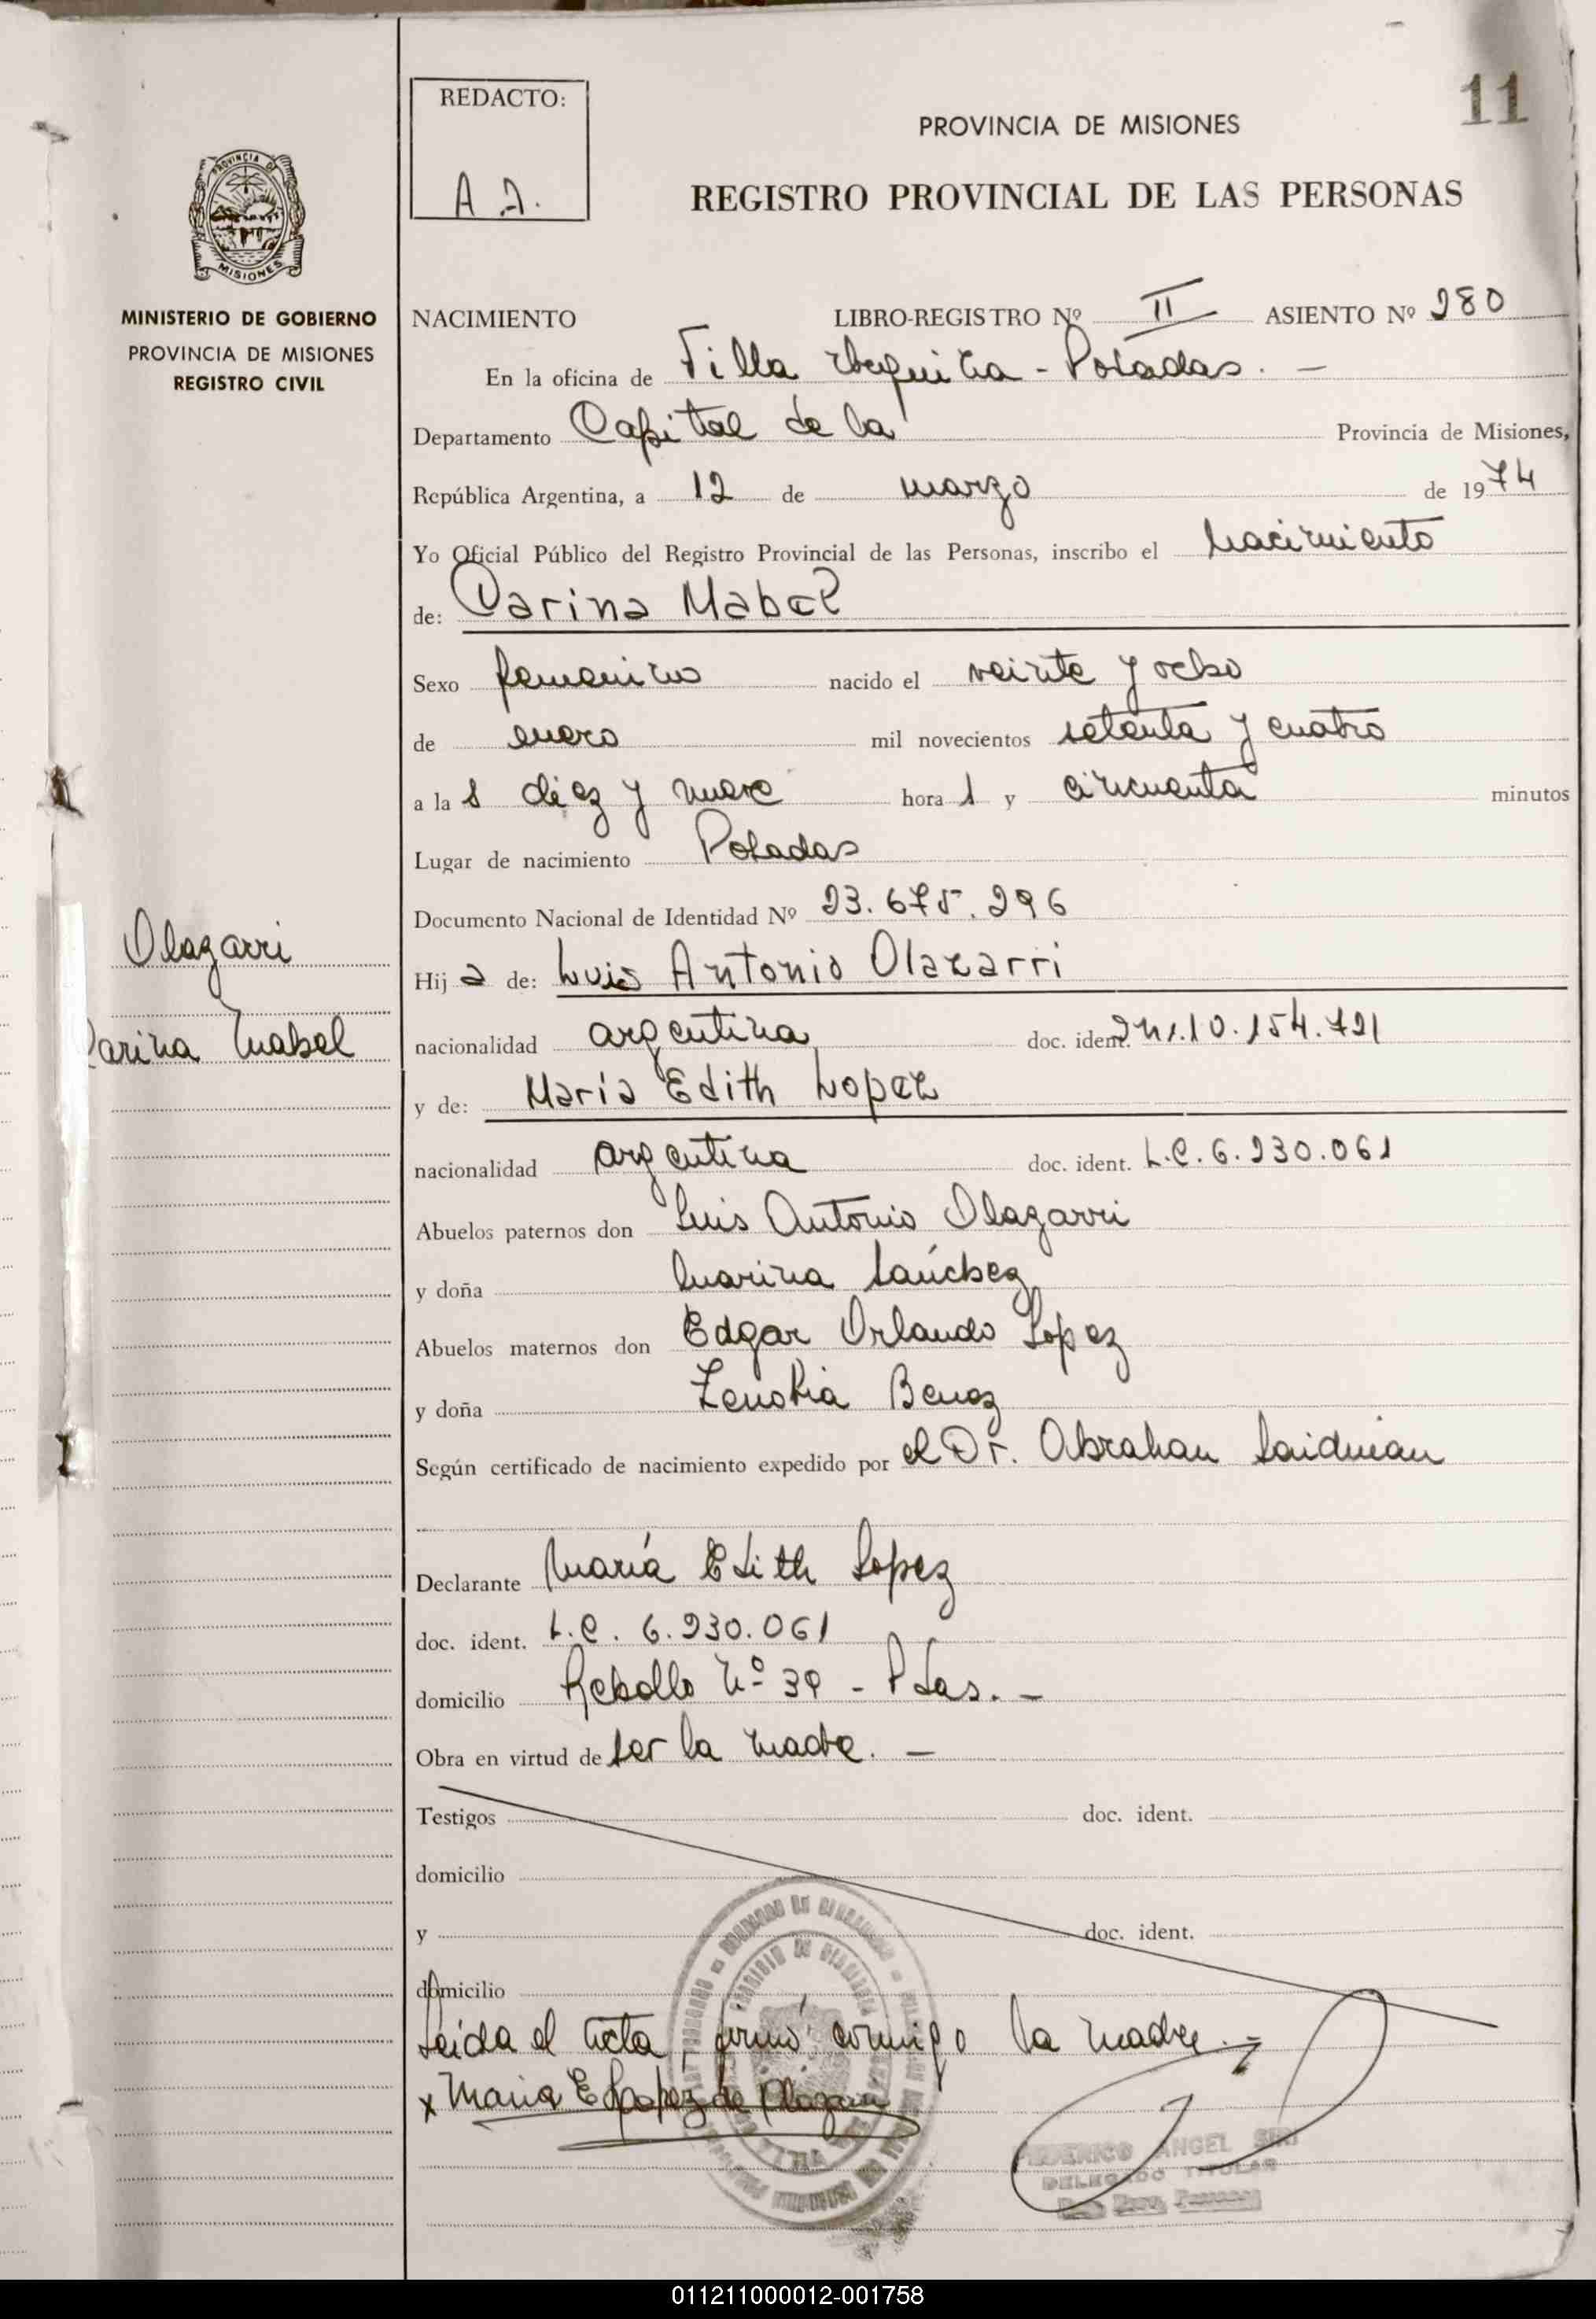 11
REDACTO:
A.J.
PROVINCIA DE MISIONES
REGISTRO PROVINCIAL DE LAS PERSONAS
PROVINCIA DE
MISIONES
MINISTERIO DE GOBIERNO
PROVINCIA DE MISIONES
REGISTRO CIVIL
NACIMIENTO LIBRO-REGISTRO Nº II ASIENTO Nº 280
En la oficina de Villa Urquiza - Posadas. -
Departamento Capital de la Provincia de Misiones,
República Argentina, a 12 de marzo de 1974
Yo Oficial Público del Registro Provincial de las Personas, inscribo el Nacimiento
de: Carina Mabel
Sexo femenino nacido el veinte y ocho
de enero mil novecientos setenta y cuatro
a la s diez y nueve hora s y cincuenta minutos
Lugar de nacimiento Posadas
Documento Nacional de Identidad Nº 23.675.296
Olazarri
Carina Mabel
Hij a de: Luis Antonio Olazarri
nacionalidad argentina doc. ident. 10.154.721
y de: María Edith Lopez
nacionalidad argentina doc. ident. L.C. 6.230.061
Abuelos paternos don Luis Antonio Olazarri
y doña Marina Sánchez
Abuelos maternos don Edgar Orlando Lopez
y doña
Según certificado de nacimiento expedido por el Dr. Abrahan
Declarante María Edith Lopez
doc. ident. L.C. 6.230.061
domicilio Rebollo Nº 39 - Pdas. -
Obra en virtud de ser la madre. -
Testigos doc. ident.
domicilio
y doc. ident.
domicilio
Leida el acta, firmó conmigo la madre.-
x Maria E Lopez de Olazarri
FEDERICO ANGEL
DELEGADO TITULAR
011211000012-001758